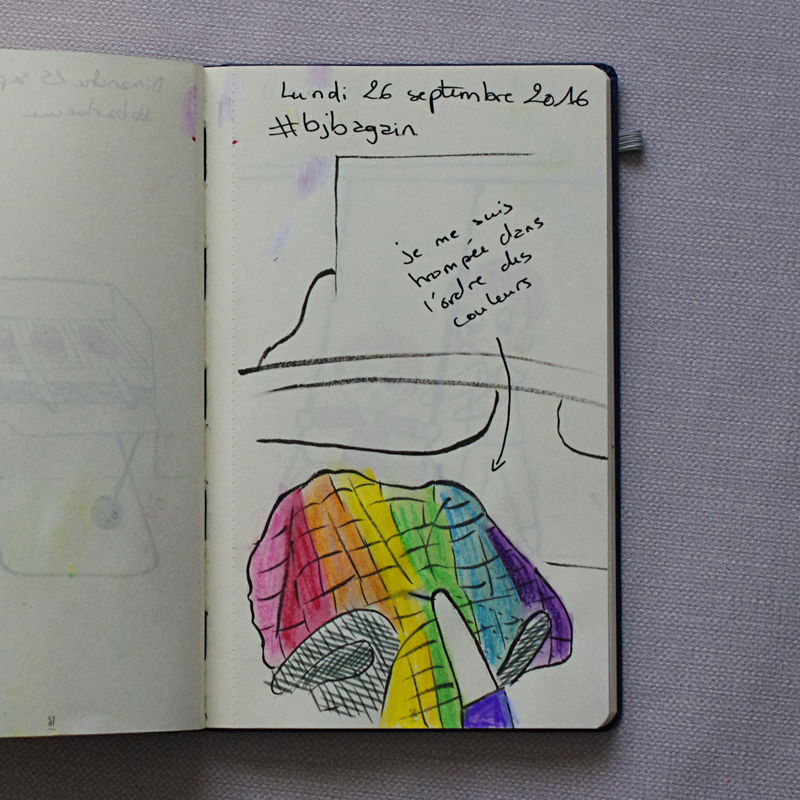 Lundi 26 septembre 2016
#bjbagain
je me suis
trompée dans
l'ordre des
couleurs
57